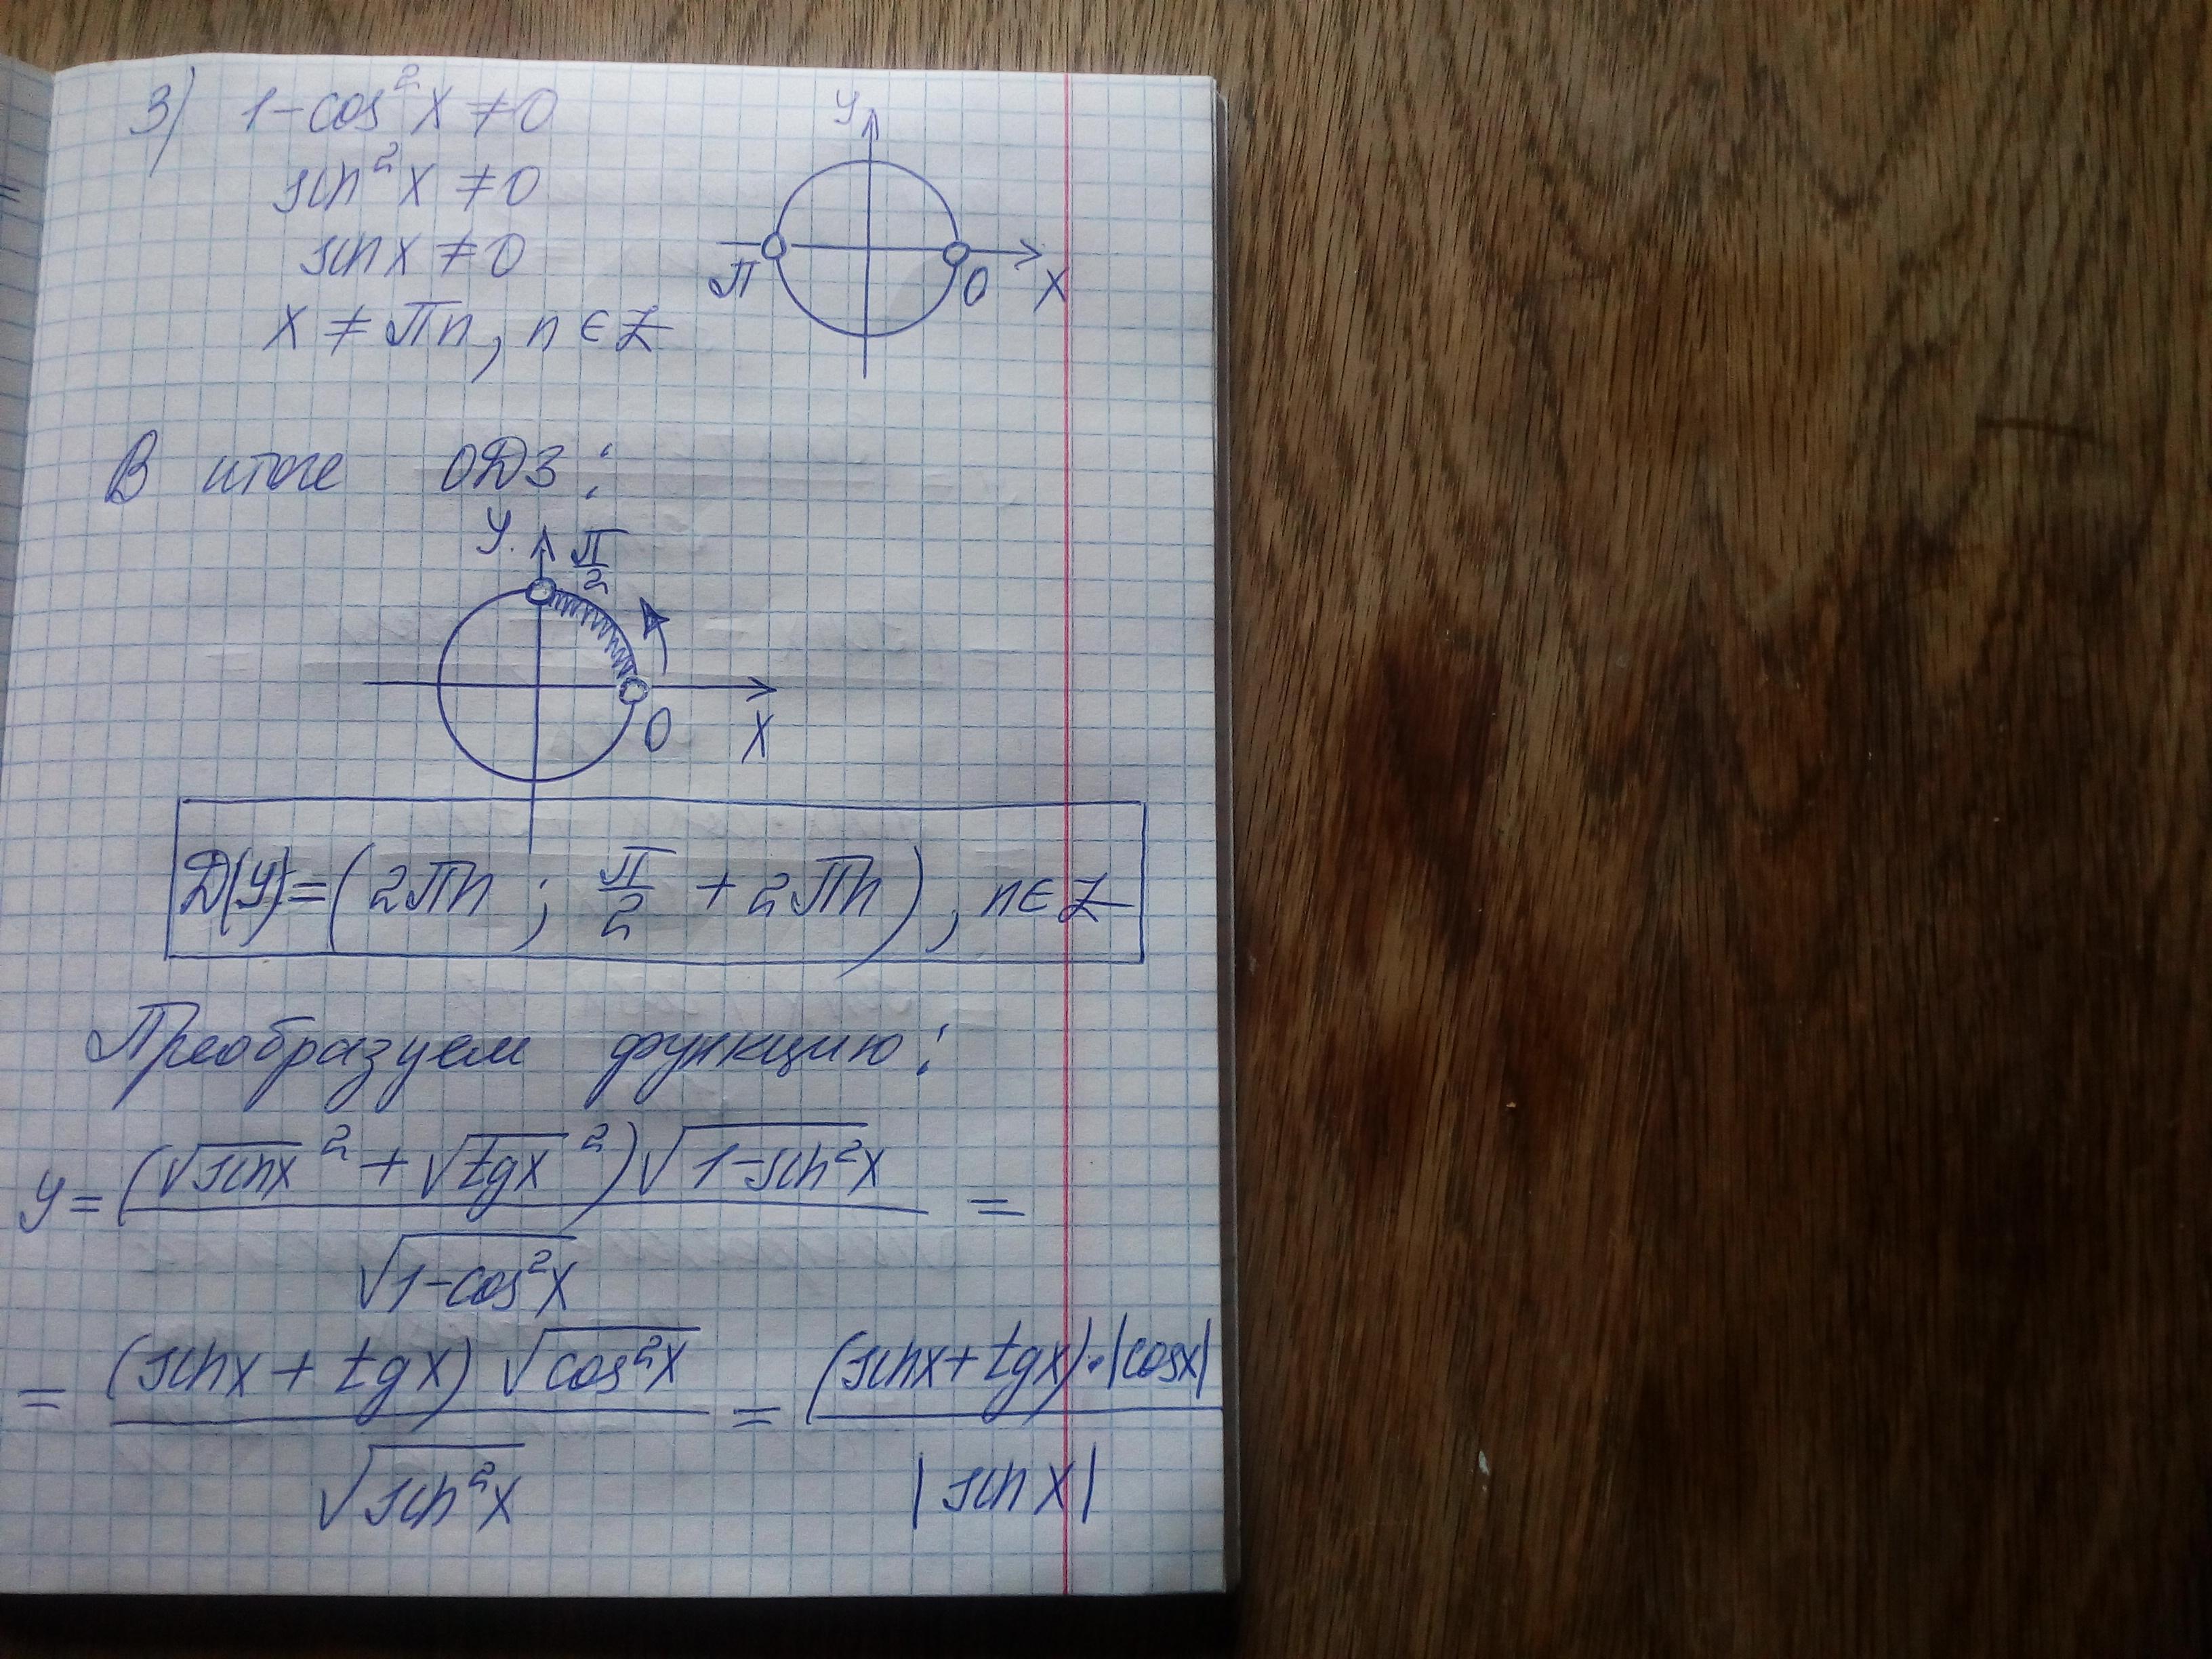 3) 1-cos²x ≠ 0
sin²x ≠ 0
sinx ≠ 0
x ≠ πn, n ∈ Z
y
π
0
x
В итоге ОДЗ:
y
π/2
0
x
D(y)=(2πn ; π/2 + 2πn), n ∈ Z
Преобразуем функцию:
y = ((√sinx² + √tgx²)√(1-sin²x)) / √(1-cos²x) =
= ((sinx + tgx) √(cos²x)) / √(sin²x) = ((sinx + tgx)·|cosx|) / |sinx|